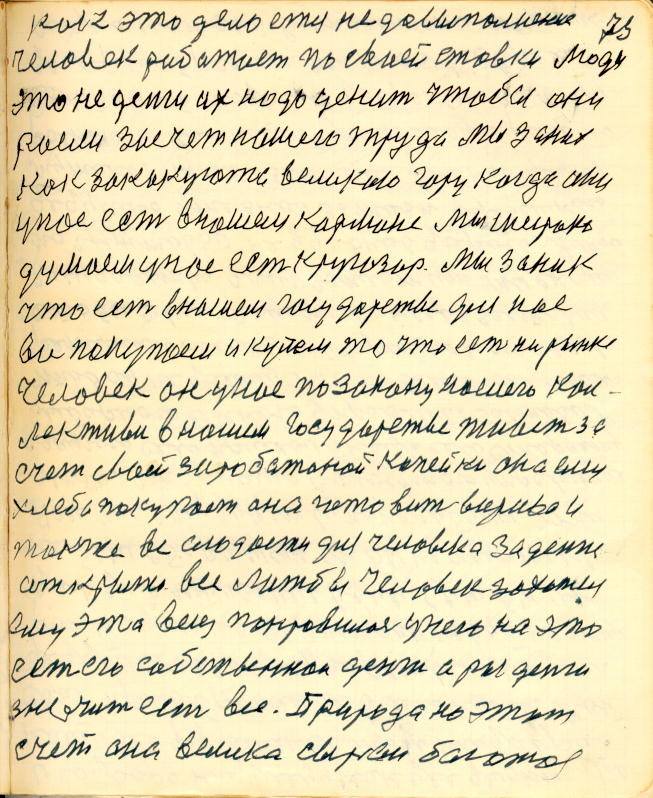 раз это дело ети недовыполнение 73
человек работает по своей ставки люди
это не денги их надо ценит чтобы они
росли засчет нашего труда мы за них
как за какуюта великаю гору когда они
унас ест внашем кармане мы широко
думаем унас ест кругозор. мы за них
что ест внашем государстве для нас
вс покупаем и купим то что ест на рынке
Человек он унас по закону нашего кол-
лектива внашем государстве живет за
счет своей заработаной копейки она ему
хлеба покупает она готовит варива и
также вс сладости для человека за денги
открыто все лиш бы Человек захотел
ему эта вещ понравилас унего на это
ест его собственная денги а раз денги
значит ест все. Природа на этот
счет она велика своим богатой